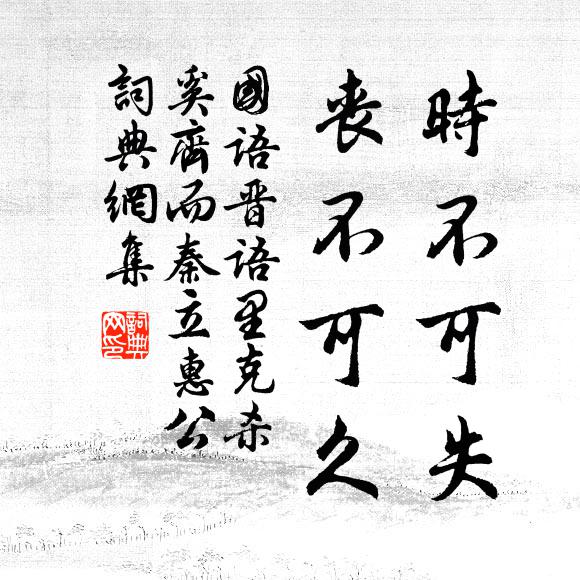 時不可失
喪不可久
國語晉語里克杀
奚齊而秦立惠公
詞典網集
詞典
网印